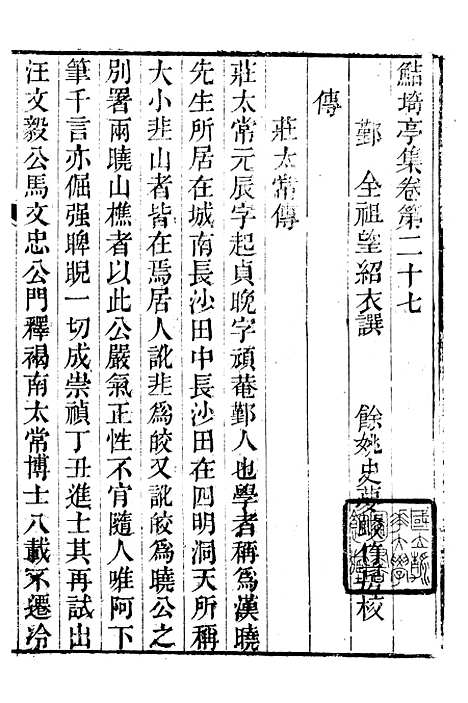 鮚埼亭集卷第二十七
鄞 全祖望紹衣譔 餘姚史夢蛟竹房校
傳
莊太常傳
莊太常元辰字起貞晚字頑菴鄞人也學者稱爲漢曉
先生所居在城南長沙田中長沙田在四明洞天所稱
大小韭山者皆在焉居人訛韭爲皎又訛皎爲曉公之
別署兩曉山樵者以此公嚴氣正性不肯隨人唯阿下
筆千言亦倔强睥睨一切成崇禎丁丑進士其再試出
汪文毅公馬文忠公門釋褐南太常博士八載不遷冷